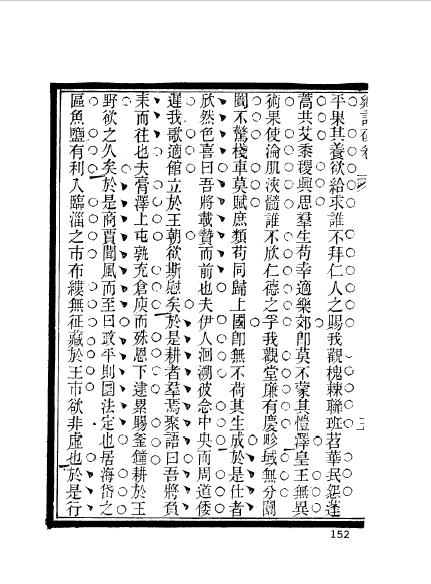 平果其養欲給求誰不拜仁人之賜我觀槐棘聯班苕華民怨蓬
蒿共艾黍稷興思羣生苟幸適樂郊卽莫不蒙其愷澤皇王無異
術果使淪肌浹髓誰不欣仁德之孚我觀堂廉有慶畛域無分闤
闠不驚棧車莫賦庶類苟同歸上國卽無不荷其生成於是仕者
欣然色喜曰吾將載贄而前也夫伊人洄溯彼念中央而周道倭
遲我歌適館立於王朝欲斯慰矣於是耕者羣焉聚語曰吾將負
耒而往也夫膏澤上屯孰充倉庾而殊恩下逮累賜釜鐘耕於王
野欲之久矣於是商賈聞風而至曰政平則圜法定也居海岱之
區魚鹽有利人臨淄之市布縷無征藏於王市欲非虛也於是行
152